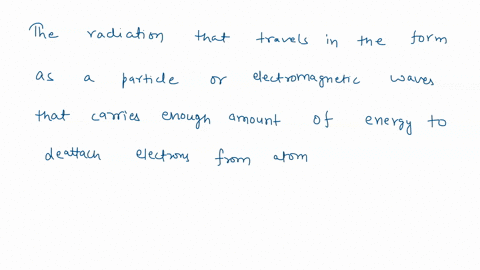 The radiation that travels in the form
as a particle or electromagnetic waves
that carries enough amount of energy to
deattach electrons from atom